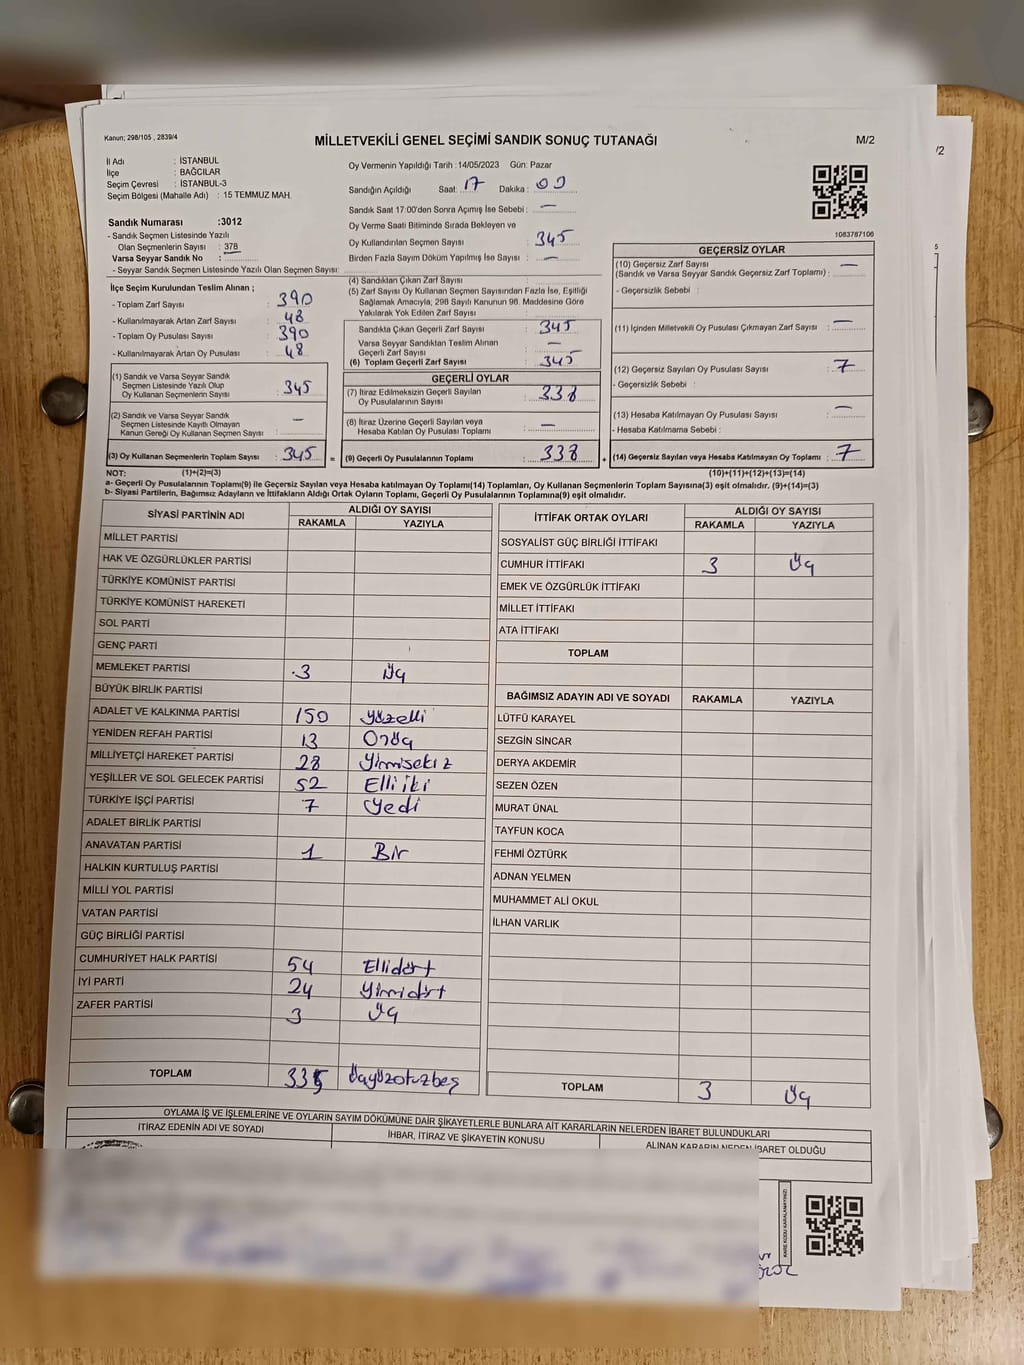 Kanun; 298/105 , 2839/4
MİLLETVEKİLİ GENEL SEÇİMİ SANDIK SONUÇ TUTANAĞI
M/2
/2
İl Adı : İSTANBUL
İlçe : BAĞCILAR
Seçim Çevresi : İSTANBUL-3
Seçim Bölgesi (Mahalle Adı) : 15 TEMMUZ MAH.
Sandık Numarası :3012
- Sandık Seçmen Listesinde Yazılı
Olan Seçmenlerin Sayısı : 378
Varsa Seyyar Sandık No :
- Seyyar Sandık Seçmen Listesinde Yazılı Olan Seçmen Sayısı:
Oy Vermenin Yapıldığı Tarih :14/05/2023 Gün: Pazar
Sandığın Açıldığı Saat: 17 Dakika : 00
Sandık Saat 17:00'den Sonra Açımış İse Sebebi : —
Oy Verme Saati Bitiminde Sırada Bekleyen ve
Oy Kullandırılan Seçmen Sayısı : 345
Birden Fazla Sayım Döküm Yapılmış İse Sayısı : —
1083787106
İlçe Seçim Kurulundan Teslim Alınan ;
- Toplam Zarf Sayısı : 390
- Kullanılmayarak Artan Zarf Sayısı : 48
- Toplam Oy Pusulası Sayısı : 390
- Kullanılmayarak Artan Oy Pusulası : 48
(1) Sandık ve Varsa Seyyar Sandık
Seçmen Listesinde Yazılı Olup
Oy Kullanan Seçmenlerin Sayısı : 345
(2) Sandık ve Varsa Seyyar Sandık
Seçmen Listesinde Kayıtlı Olmayan
Kanun Gereği Oy Kullanan Seçmen Sayısı : —
(3) Oy Kullanan Seçmenlerin Toplam Sayısı : 345 =
(4) Sandıktan Çıkan Zarf Sayısı :
(5) Zarf Sayısı Oy Kullanan Seçmen Sayısından Fazla İse, Eşitliği
Sağlamak Amacıyla; 298 Sayılı Kanunun 98. Maddesine Göre
Yakılarak Yok Edilen Zarf Sayısı :
Sandıkta Çıkan Geçerli Zarf Sayısı : 345
Varsa Seyyar Sandıktan Teslim Alınan
Geçerli Zarf Sayısı : —
(6) Toplam Geçerli Zarf Sayısı : 345
GEÇERLİ OYLAR
(7) İtiraz Edilmeksizin Geçerli Sayılan
Oy Pusulalarının Sayısı : 338
(8) İtiraz Üzerine Geçerli Sayılan veya
Hesaba Katılan Oy Pusulası Toplamı : —
(9) Geçerli Oy Pusulalarının Toplamı : 338 +
GEÇERSİZ OYLAR
(10) Geçersiz Zarf Sayısı
(Sandık ve Varsa Seyyar Sandık Geçersiz Zarf Toplamı) : —
- Geçersizlik Sebebi :
(11) İçinden Milletvekili Oy Pusulası Çıkmayan Zarf Sayısı : —
(12) Geçersiz Sayılan Oy Pusulası Sayısı : 7
- Geçersizlik Sebebi :
(13) Hesaba Katılmayan Oy Pusulası Sayısı : —
- Hesaba Katılmama Sebebi :
(14) Geçersiz Sayılan veya Hesaba Katılmayan Oy Toplamı : 7
NOT: (1)+(2)=(3) (10)+(11)+(12)+(13)=(14)
a- Geçerli Oy Pusulalarının Toplamı(9) ile Geçersiz Sayılan veya Hesaba katılmayan Oy Toplamı(14) Toplamları, Oy Kullanan Seçmenlerin Toplam Sayısına(3) eşit olmalıdır. (9)+(14)=(3)
b- Siyasi Partilerin, Bağımsız Adayların ve İttifakların Aldığı Ortak Oyların Toplamı, Geçerli Oy Pusulalarının Toplamına(9) eşit olmalıdır.
SİYASİ PARTİNİN ADI ALDIĞI OY SAYISI
RAKAMLA YAZIYLA
MİLLET PARTİSİ
HAK VE ÖZGÜRLÜKLER PARTİSİ
TÜRKİYE KOMÜNİST PARTİSİ
TÜRKİYE KOMÜNİST HAREKETİ
SOL PARTİ
GENÇ PARTİ
MEMLEKET PARTİSİ 3 Üç
BÜYÜK BİRLİK PARTİSİ
ADALET VE KALKINMA PARTİSİ 150 Yüzelli
YENİDEN REFAH PARTİSİ 13 Onüç
MİLLİYETÇİ HAREKET PARTİSİ 28 Yirmisekiz
YEŞİLLER VE SOL GELECEK PARTİSİ 52 Elliiki
TÜRKİYE İŞÇİ PARTİSİ 7 Yedi
ADALET BİRLİK PARTİSİ
ANAVATAN PARTİSİ 1 Bir
HALKIN KURTULUŞ PARTİSİ
MİLLİ YOL PARTİSİ
VATAN PARTİSİ
GÜÇ BİRLİĞİ PARTİSİ
CUMHURİYET HALK PARTİSİ 54 Ellidört
İYİ PARTİ 24 Yirmidört
ZAFER PARTİSİ 3 Üç
TOPLAM 335 Üçyüzotuzbeş
İTTİFAK ORTAK OYLARI ALDIĞI OY SAYISI
RAKAMLA YAZIYLA
SOSYALİST GÜÇ BİRLİĞİ İTTİFAKI
CUMHUR İTTİFAKI 3 Üç
EMEK VE ÖZGÜRLÜK İTTİFAKI
MİLLET İTTİFAKI
ATA İTTİFAKI
TOPLAM
BAĞIMSIZ ADAYIN ADI VE SOYADI RAKAMLA YAZIYLA
LÜTFÜ KARAYEL
SEZGİN SİNCAR
DERYA AKDEMİR
SEZEN ÖZEN
MURAT ÜNAL
TAYFUN KOCA
FEHMİ ÖZTÜRK
ADNAN YELMEN
MUHAMMET ALİ OKUL
İLHAN VARLIK
TOPLAM 3 Üç
OYLAMA İŞ VE İŞLEMLERİNE VE OYLARIN SAYIM DÖKÜMÜNE DAİR ŞİKAYETLERLE BUNLARA AİT KARARLARIN NELERDEN İBARET BULUNDUKLARI
İTİRAZ EDENİN ADI VE SOYADI İHBAR, İTİRAZ VE ŞİKAYETİN KONUSU ALINAN KARARIN NEDEN İBARET OLDUĞU
KARE KODU KARALAMAYINIZ!